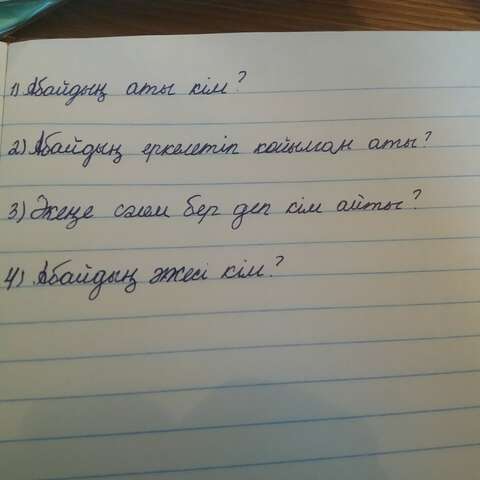 1) Абайдың аты кім?
2) Абайдың еркелетіп қойылған аты?
3) Әкеңе сәлем бер деп кім айтты?
4) Абайдың әжесі кім?